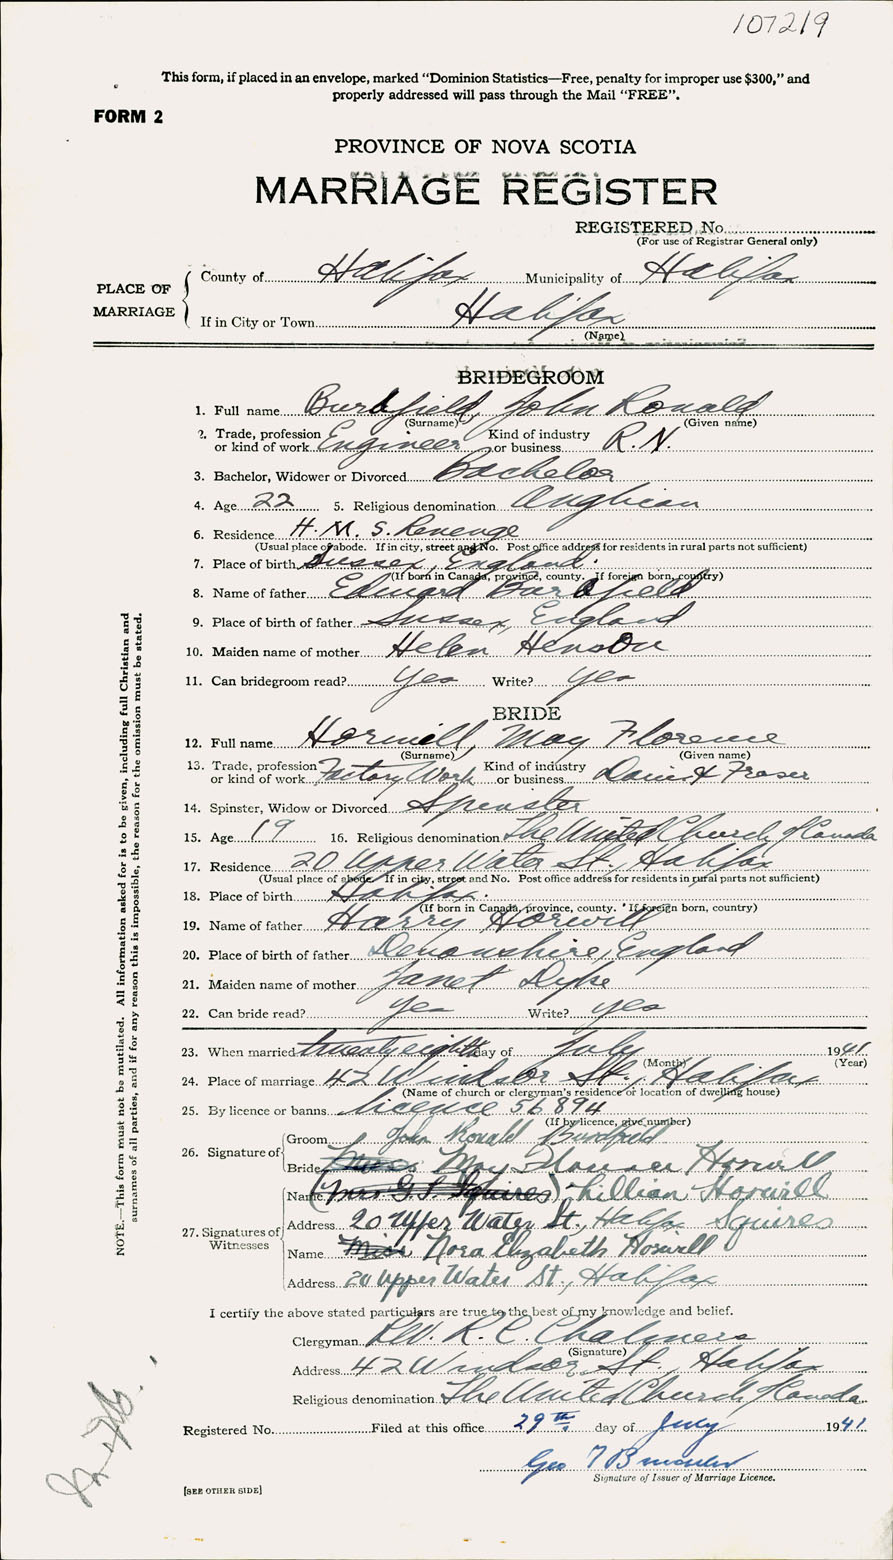 107219
This form, if placed in an envelope, marked "Dominion Statistics—Free, penalty for improper use $300," and
properly addressed will pass through the Mail "FREE".
FORM 2
PROVINCE OF NOVA SCOTIA
MARRIAGE REGISTER
REGISTERED No.
(For use of Registrar General only)
PLACE OF MARRIAGE
County of Halifax Municipality of Halifax
If in City or Town Halifax
(Name)
BRIDEGROOM
1. Full name Burdfield, John Ronald
(Surname) (Given name)
2. Trade, profession or kind of work Engineer Kind of industry or business R.N.
3. Bachelor, Widower or Divorced Bachelor
4. Age 22 5. Religious denomination Anglican
6. Residence H.M.S. Revenge
(Usual place of abode. If in city, street and No. Post office address for residents in rural parts not sufficient)
7. Place of birth Sussex, England.
(If born in Canada, province, county. If foreign born, country)
8. Name of father Edward
9. Place of birth of father Sussex, England
10. Maiden name of mother Helen
11. Can bridegroom read? Yes Write? Yes
BRIDE
12. Full name Horwill, May Florence
(Surname) (Given name)
13. Trade, profession or kind of work Factory Work Kind of industry or business Fraser
14. Spinster, Widow or Divorced Spinster
15. Age 19 16. Religious denomination The United Church of Canada
17. Residence 20 Upper Water St., Halifax
(Usual place of abode. If in city, street and No. Post office address for residents in rural parts not sufficient)
18. Place of birth Halifax.
(If born in Canada, province, county. If foreign born, country)
19. Name of father Harry Horwill
20. Place of birth of father Devonshire, England
21. Maiden name of mother Janet Dyke
22. Can bride read? Yes Write? Yes
23. When married twenty eighth day of July 1941
(Month) (Year)
24. Place of marriage 42 Windsor St., Halifax
(Name of church or clergyman's residence or location of dwelling house)
25. By licence or banns licence 56894
(If by licence, give number)
26. Signature of
Groom John Ronald Burdfield
Bride Miss May Florence Horwill
27. Signatures of Witnesses
Name (Mrs G.S. Squires) Lillian Horwill
Address 20 Upper Water St., Halifax Squires
Name Miss Nora Elizabeth Horwill
Address 20 Upper Water St., Halifax
I certify the above stated particulars are true to the best of my knowledge and belief.
Clergyman Rev. R. C. Chalmers
(Signature)
Address 42 Windsor St., Halifax
Religious denomination The United Church of Canada
Registered No. Filed at this office 29th day of July 1941
Geo
Signature of Issuer of Marriage Licence.
[SEE OTHER SIDE]
NOTE.—This form must not be mutilated. All information asked for is to be given, including full Christian and
surnames of all parties, and if for any reason this is impossible, the reason for the omission must be stated.